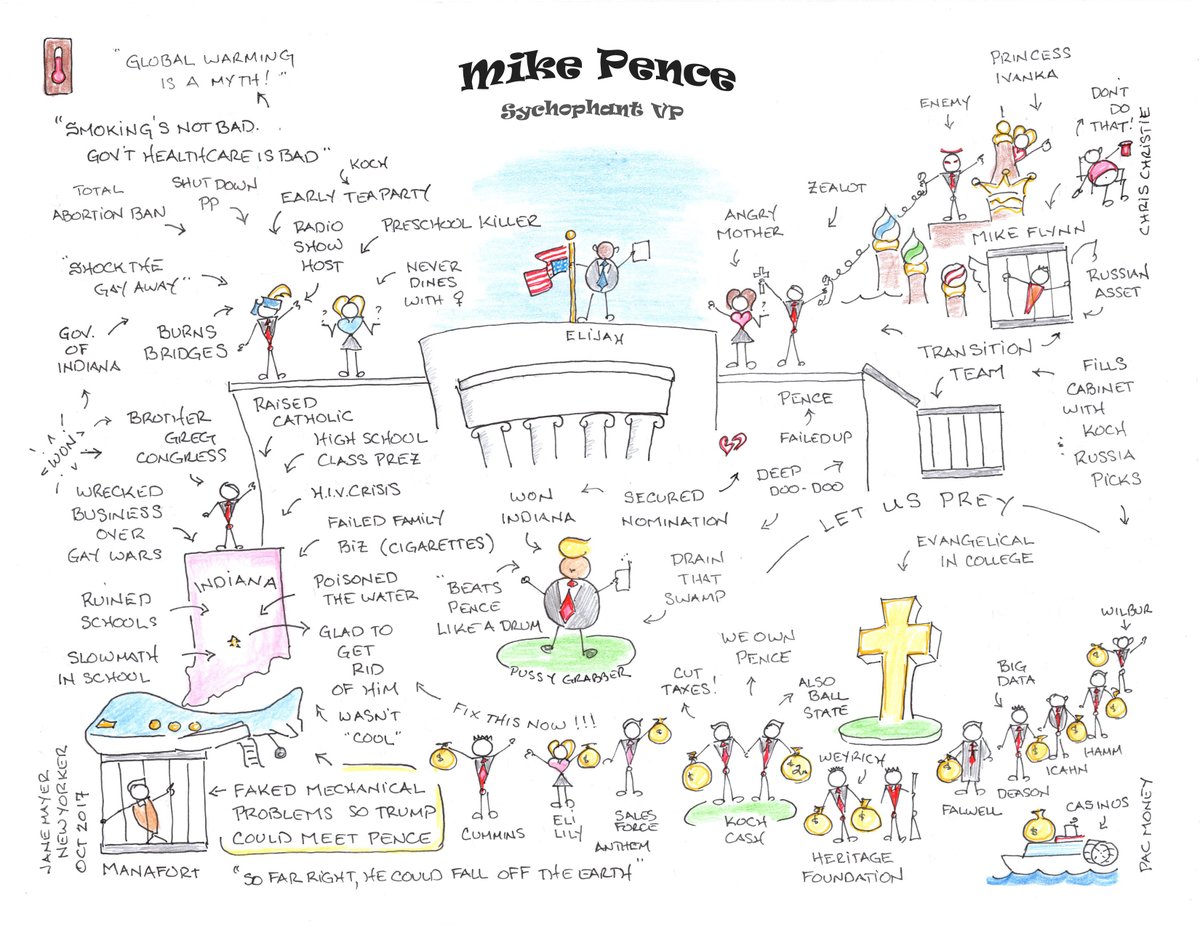 Mike Pence
Sychophant VP
"GLOBAL WARMING
IS A MYTH!"
"SMOKING'S NOT BAD.
GOV'T HEALTHCARE IS BAD"
TOTAL
ABORTION BAN
SHUT DOWN
PP
KOCH
EARLY TEA PARTY
RADIO
SHOW
HOST
PRESCHOOL KILLER
"SHOCK THE
GAY AWAY"
NEVER
DINES
WITH ♀
? ?
GOV.
OF
INDIANA
BURNS
BRIDGES
ELIJAH
ANGRY
MOTHER
? ?
ZEALOT
ENEMY
PRINCESS
IVANKA
DON'T
DO
THAT!
CHRIS CHRISTIE
MIKE FLYNN
RUSSIAN
ASSET
TRANSITION
TEAM
FILLS
CABINET
WITH
KOCH
RUSSIA
PICKS
WON
BROTHER
GREG
CONGRESS
RAISED
CATHOLIC
HIGH SCHOOL
CLASS PREZ
H.I.V. CRISIS
FAILED FAMILY
BIZ (CIGARETTES)
WRECKED
BUSINESS
OVER
GAY WARS
INDIANA
POISONED
THE WATER
RUINED
SCHOOLS
SLOW MATH
IN SCHOOL
GLAD TO
GET
RID
OF HIM
WASN'T
"COOL"
PENCE
FAILED UP
DEEP
DOO-DOO
SECURED
NOMINATION
WON
INDIANA
"BEATS
PENCE
LIKE A DRUM
PUSSY GRABBER
DRAIN
THAT
SWAMP
LET US PREY
EVANGELICAL
IN COLLEGE
WE OWN
PENCE
CUT
TAXES!
ALSO
BALL
STATE
FIX THIS NOW!!!
CUMMINS
ELI
LILY
$
SALES
FORCE
ANTHEM
KOCH
CASH
WEYRICH
HERITAGE
FOUNDATION
FALWELL
DEASON
BIG
DATA
ICAHN
HAMM
WILBUR
CASINOS
PAC MONEY
FAKED MECHANICAL
PROBLEMS SO TRUMP
COULD MEET PENCE
MANAFORT
"SO FAR RIGHT, HE COULD FALL OFF THE EARTH"
JANE MAYER
NEW YORKER
OCT 2017